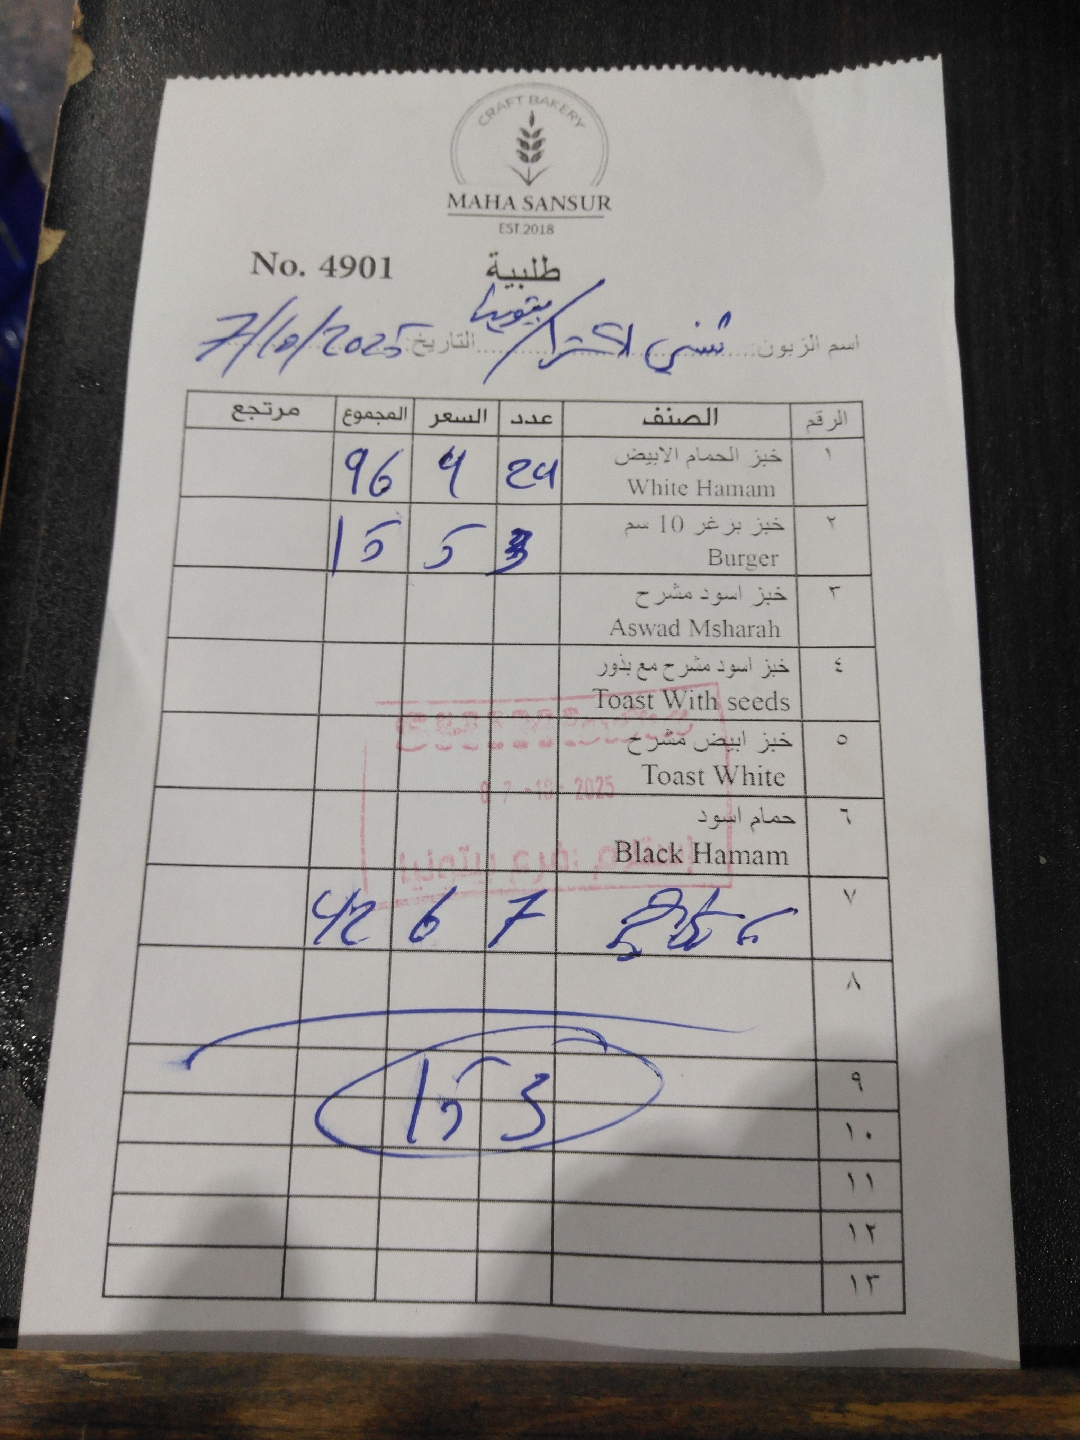 CRAFT BAKERY
MAHA SANSUR
EST.2018
No. 4901 طلبية
اسم الزبون: شني اكسترا / بيتونيا التاريخ: 7/10/2025
الرقم الصنف عدد السعر المجموع مرتجع
١ خبز الحمام الابيض 24 4 96
White Hamam
٢ خبز برغر 10 سم 3 5 15
Burger
٣ خبز اسود مشرح
Aswad Msharah
٤ خبز اسود مشرح مع بذور
Toast With seeds
٥ خبز ابيض مشرح
Toast White
07-10-2025
٦ حمام اسود
Black Hamam
استلام فرع بيتونيا
٧ 7 6 42
٨
153
٩
١٠
١١
١٢
١٣